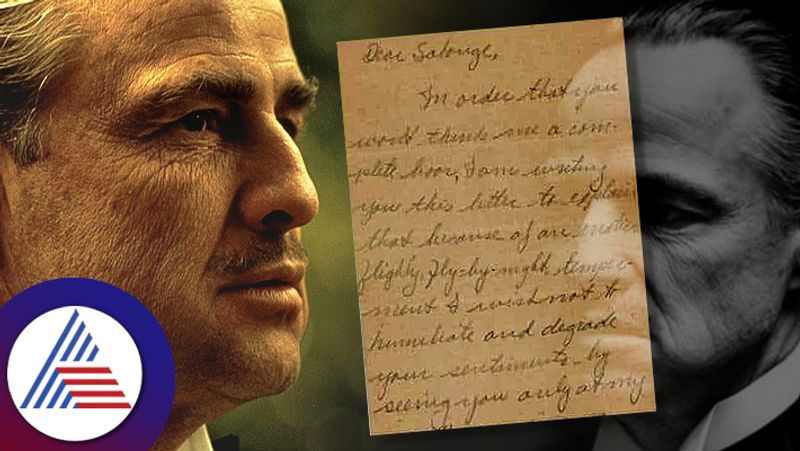 Dear Solange,
In order that you
won't think me a com-
plete boor, I am writing
you this letter to explain
that because of an
flighty, fly-by-night tempe-
ment I wish not to
humiliate and degrade
your sentiments by
seeing you only at my